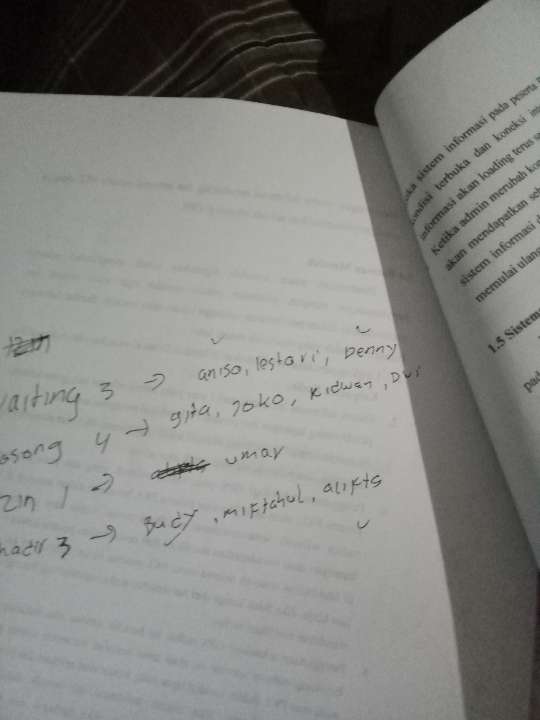 waiting 3 → anisa, lestari, Denny
osong 4 → gita, Joko, Ridwan, Dwi
izin 1 → umar
hadir 3 → Budy, miftahul, alikta
ka sistem informasi pada peserta
ondisi terbuka dan koneksi
informasi akan loading terus
Ketika admin merubah
akan mendapatkan
sistem informasi
memulai ulang
1.5 Sistem
pad